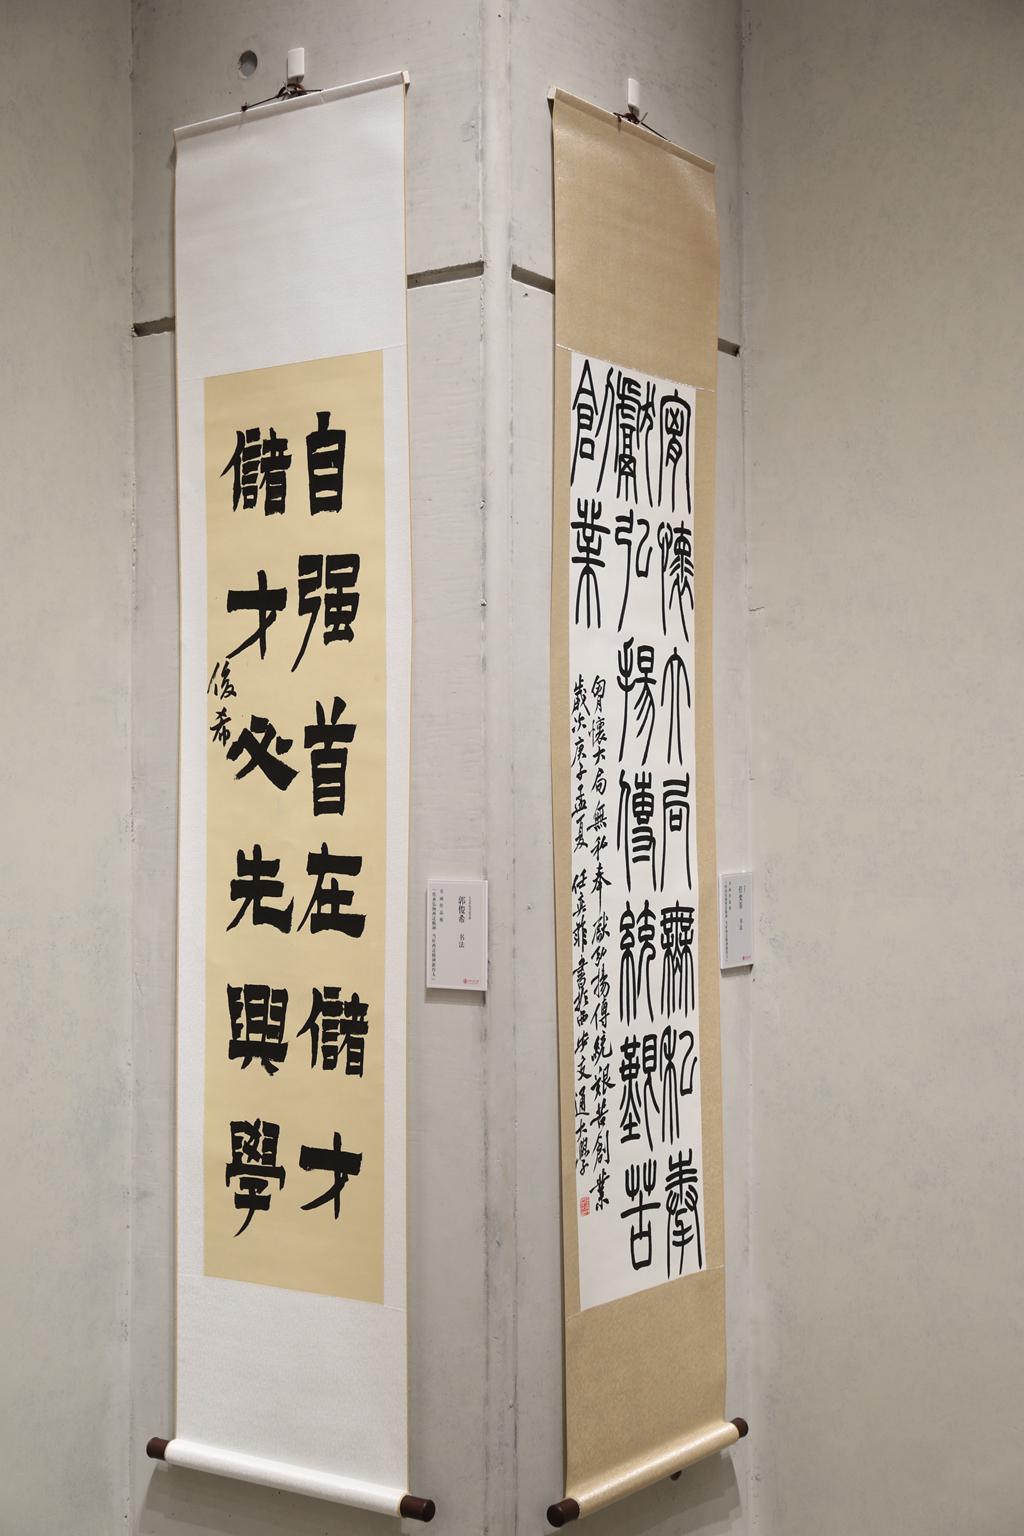 自强首在儲才
儲才必先興學
俊希
郭俊希 书法
胷懷大局無私奉
獻弘揚傳統艱苦
創業
胷懷大局無私奉獻弘揚傳統艱苦創業
歲次庚子孟夏 任奕菲書於西安交通大學